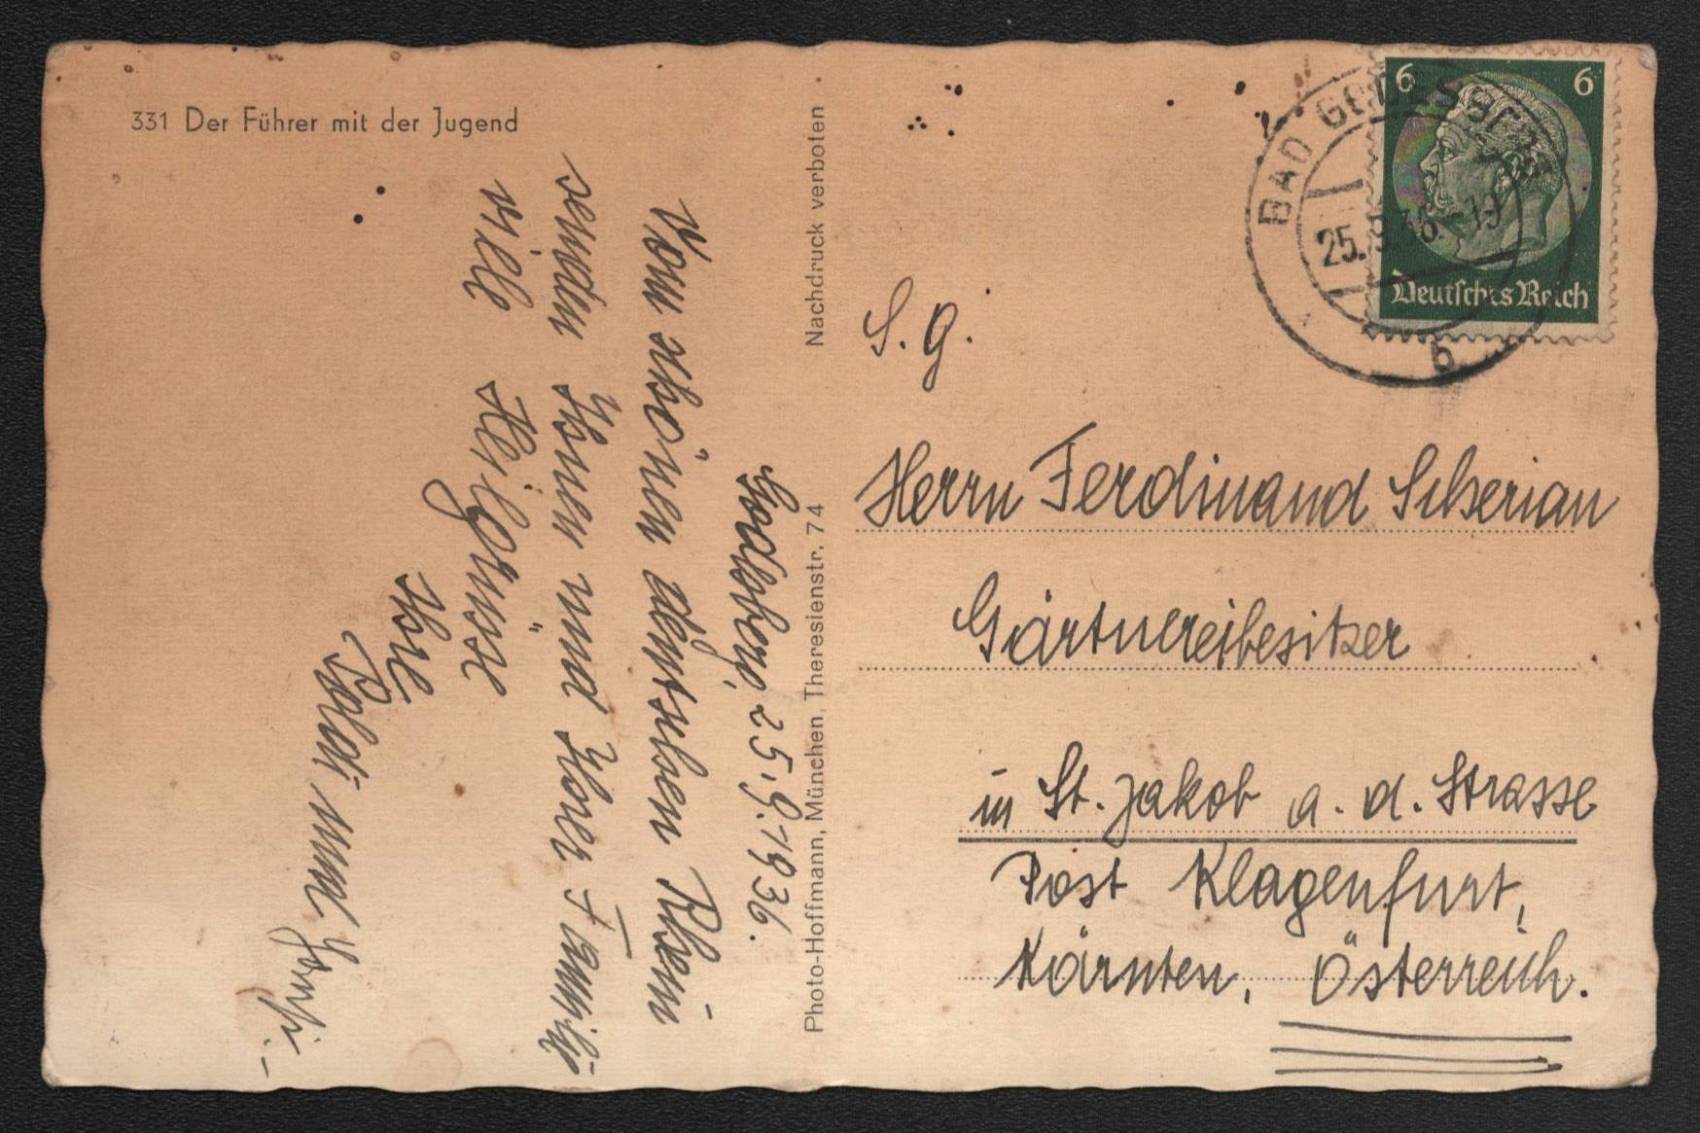 331 Der Führer mit der Jugend
Godesberg, 25.9.1936.
Vom schönen deutschen Rhein
senden Ihnen und Ihrer Familie
viele Heilgrüsse
Ihre
Poldi und
Nachdruck verboten
Photo-Hoffmann, München, Theresienstr. 74
BAD GODESBERG
25.9.36.-19
b
6 6
Deutsches Reich
S. g.
Herrn Ferdinand
Gärtnereibesitzer
in St. Jakob a. d. Strasse
Post Klagenfurt,
Kärnten, Österreich.